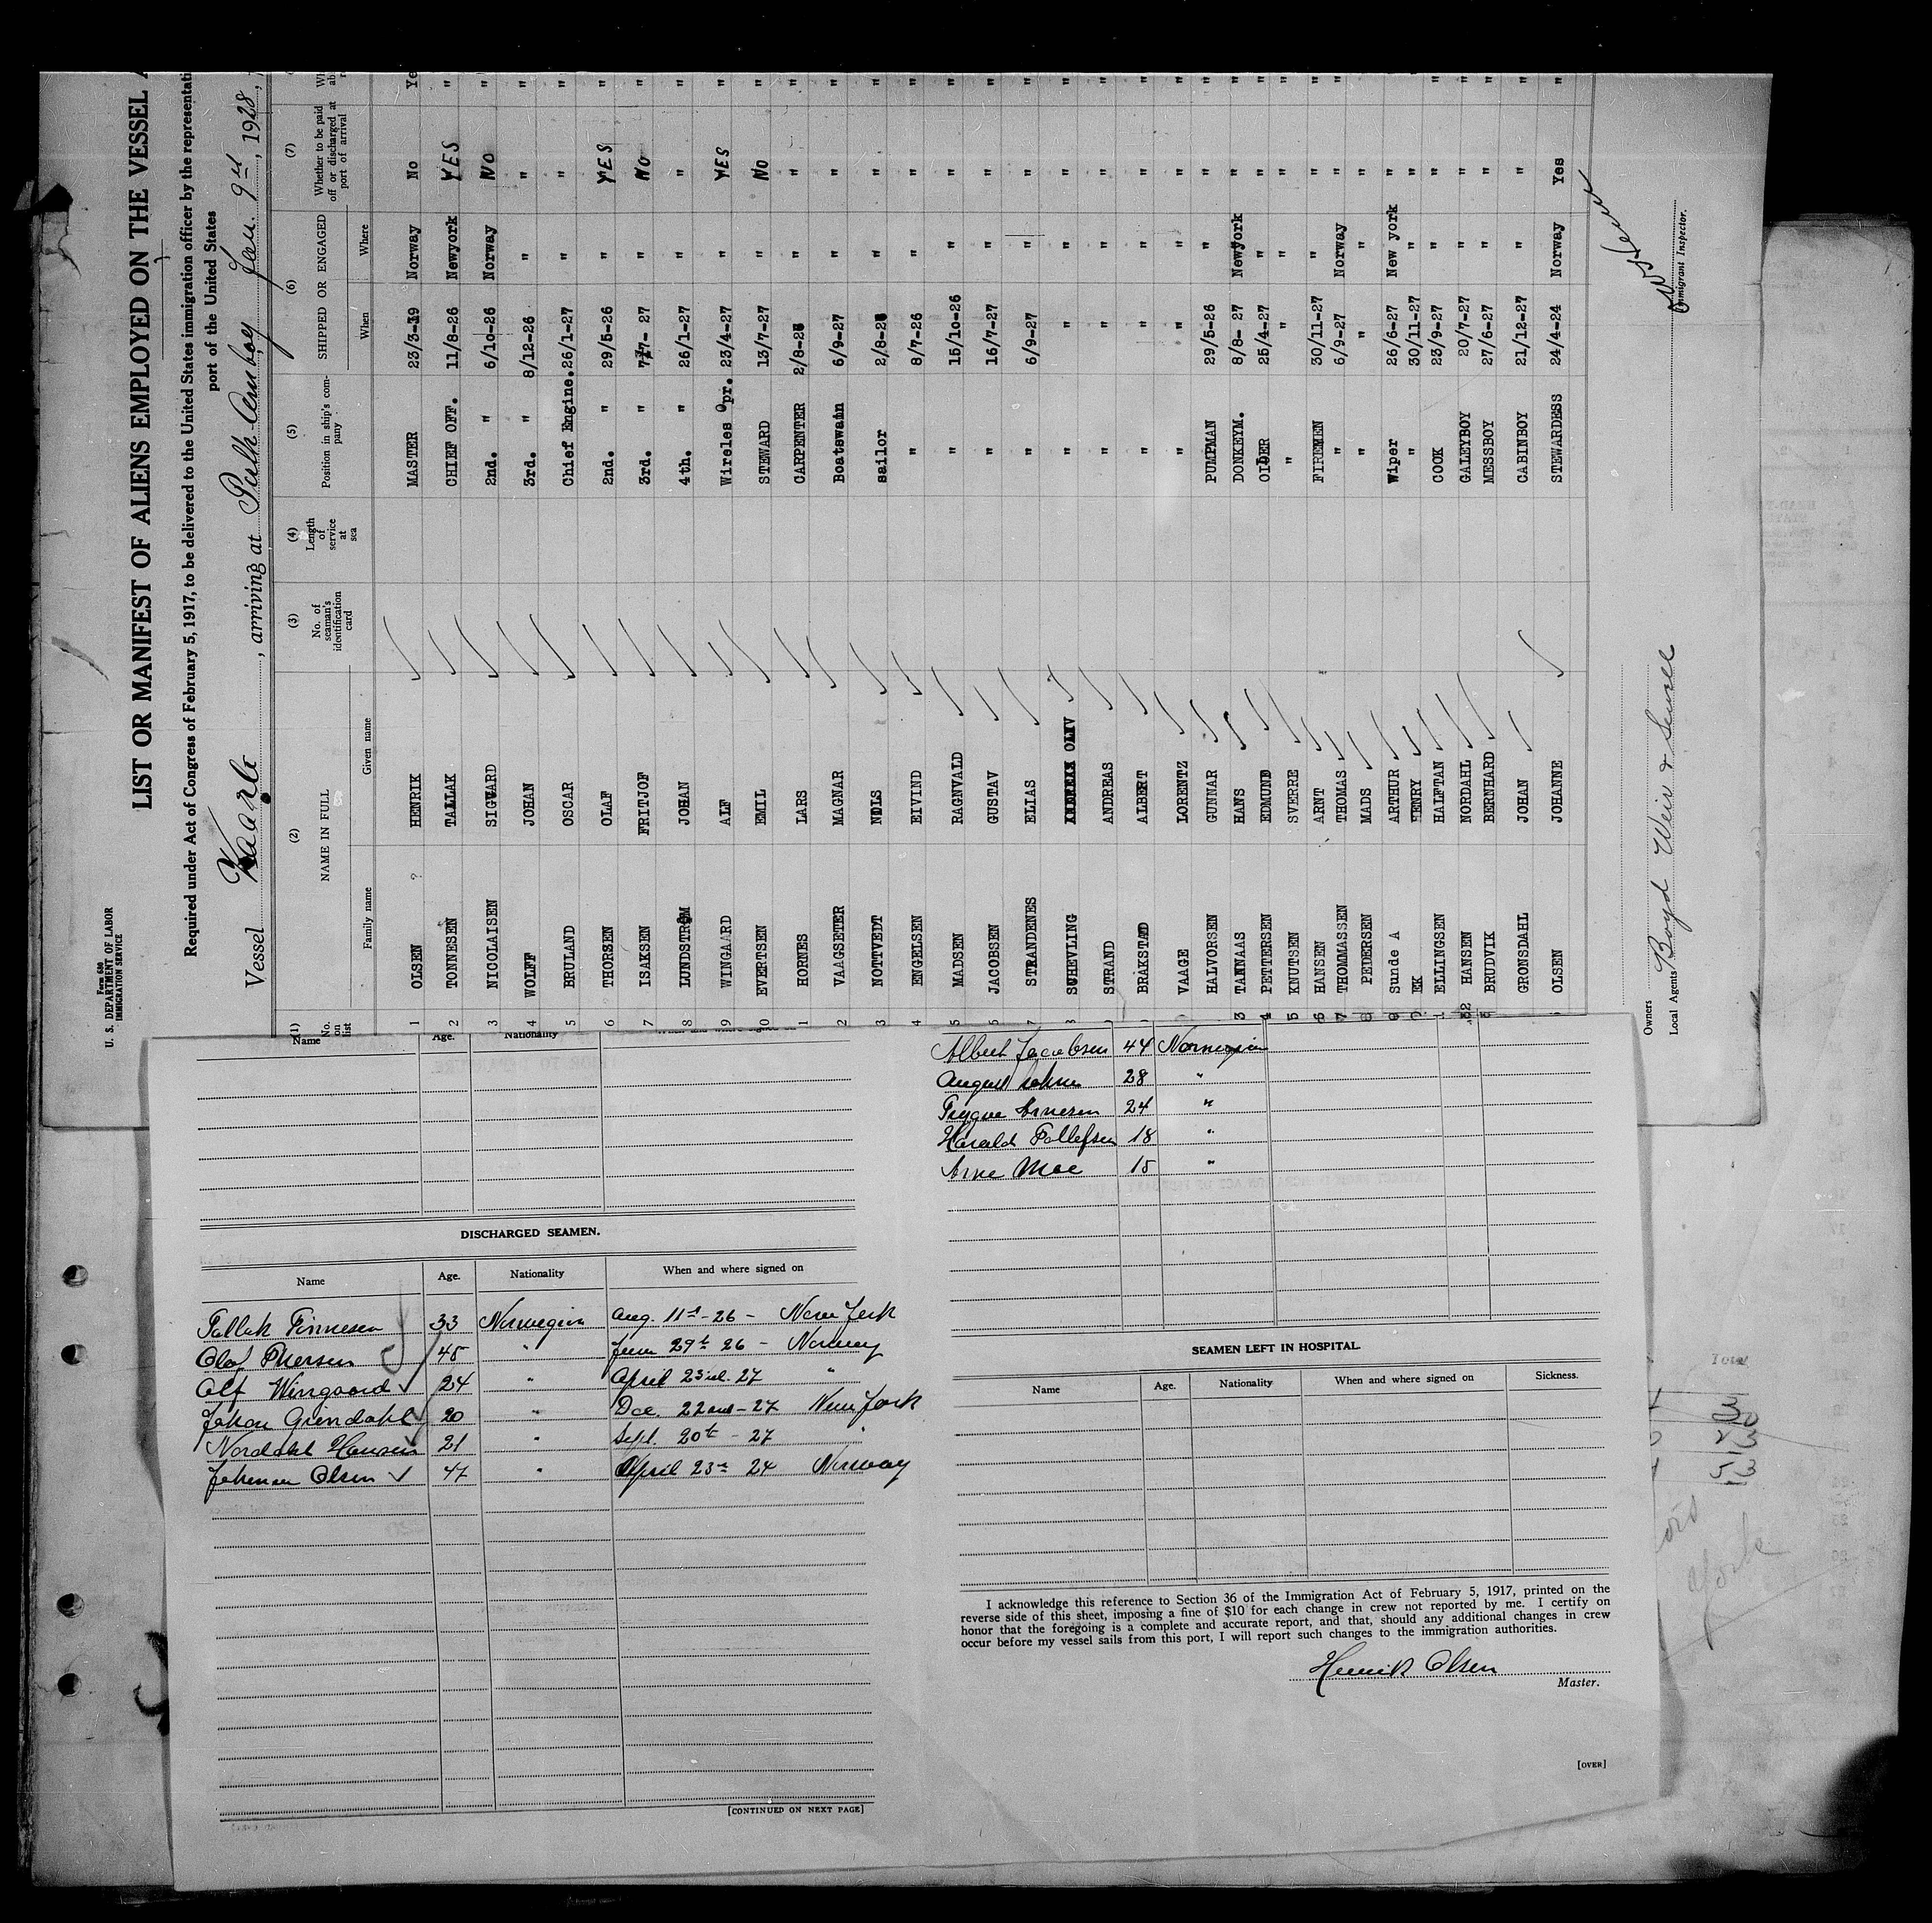 Form 680
U. S. DEPARTMENT OF LABOR
IMMIGRATION SERVICE
LIST OR MANIFEST OF ALIENS EMPLOYED ON THE VESSEL A
Required under Act of Congress of February 5, 1917, to be delivered to the United States immigration officer by the representati
port of the United States
Vessel , arriving at Amboy Jan. 9, 1928,
(1) No. on list (2) NAME IN FULL (3) No. of seaman's identification card (4) Length of service at sea (5) Position in ship's company (6) SHIPPED OR ENGAGED (7) Whether to be paid off or discharged at port of arrival
Family name Given name When Where
1 OLSEN ? HENRIK MASTER 23/3-19 Norway No Ye
2 TONNESEN TALLAK CHIEF OFF. 11/8-26 Newyork YES "
3 NICOLAISEN SIGVARD 2nd. " 6/10-26 Norway NO "
4 WOLFF JOHAN 3rd. " 8/12-26 " " "
5 BRULAND OSCAR Chief Engine. 26/1-27 " " "
6 THORSEN OLAF 2nd. " 29/5-26 " YES "
7 ISAKSEN FRITJOF 3rd. " 7- 27 " NO "
8 LUNDSTROM JOHAN 4th. " 26/1-27 " " "
9 WINGAARD ALF Wireles Opr. 23/4-27 " YES "
10 EVERTSEN EMIL STEWARD 13/7-27 " NO "
1 HORNES LARS CARPENTER 2/8- " " "
2 VAAGSETER MAGNAR Boatswain 6/9-27 " " "
3 NOTTVEDT NILS sailor 2/8- " " "
4 ENGELSEN EIVIND " 8/7-26 " " "
5 MADSEN RAGNVALD " 15/10-26 " " "
JACOBSEN GUSTAV " 16/7-27 " " "
7 STRANDENES ELIAS " 6/9-27 " " "
SUHEVLING OLIV " " " " "
STRAND ANDREAS " " " " "
BRAKSTAD ALBERT " " " " "
VAAGE LORENTZ " " " " "
HALVORSEN GUNNAR PUMPMAN 29/5-26 " " "
3 TANNAAS HANS DONKEYM. 8/8- 27 Newyork " "
4 PETTERSEN EDMUND OILER 25/4-27 " " "
5 KNUTSEN SVERRE " " " " "
6 HANSEN ARNT FIREMEN 30/11-27 " " "
7 THOMMASSEN THOMAS " 6/9-27 Norway " "
PEDERSEN MADS " " " " "
Sunde A ARTHUR Wiper 26/6-27 New york " "
EK HENRY " 30/11-27 " "
ELLINGSEN HALFTAN COOK 23/9-27 " " "
32 HANSEN NORDAHL GALEYBOY 20/7-27 " " "
BRUDVIK BERNHARD MESSBOY 27/6-27 " " "
GRONSDAHL JOHAN CABINBOY 21/12-27 " " "
OLSEN JOHANNE STEWARDESS 24/4-24 Norway Yes "
Owners
Local Agents Boyd Weir &
Immigrant Inspector.
Name Age. Nationality
DISCHARGED SEAMEN.
Name Age. Nationality When and where signed on
Tallak Tönnesen 33 Norwegian Aug. 11-26 - New York
Olaf Thorsen 45 " 29th 26 - Norway
Alf Wingaard 24 " April 23rd. 27 "
Johan Gröndahl 20 " Dec. 22nd - 27 New York
Nordahl Hansen 21 " Sept. 20th - 27 "
Johanne Olsen 47 " April 23rd 24 Norway
[CONTINUED ON NEXT PAGE]
Albert Jacobsen 44 Norwegian
August 28 "
Trygve Arnesen 24 "
Harald Tollefsen 18 "
Arne Moe 15 "
SEAMEN LEFT IN HOSPITAL.
Name Age. Nationality When and where signed on Sickness.
I acknowledge this reference to Section 36 of the Immigration Act of February 5, 1917, printed on the
reverse side of this sheet, imposing a fine of $10 for each change in crew not reported by me. I certify on
honor that the foregoing is a complete and accurate report, and that, should any additional changes in crew
occur before my vessel sails from this port, I will report such changes to the immigration authorities.
Henrik Olsen
Master.
[OVER]
Total